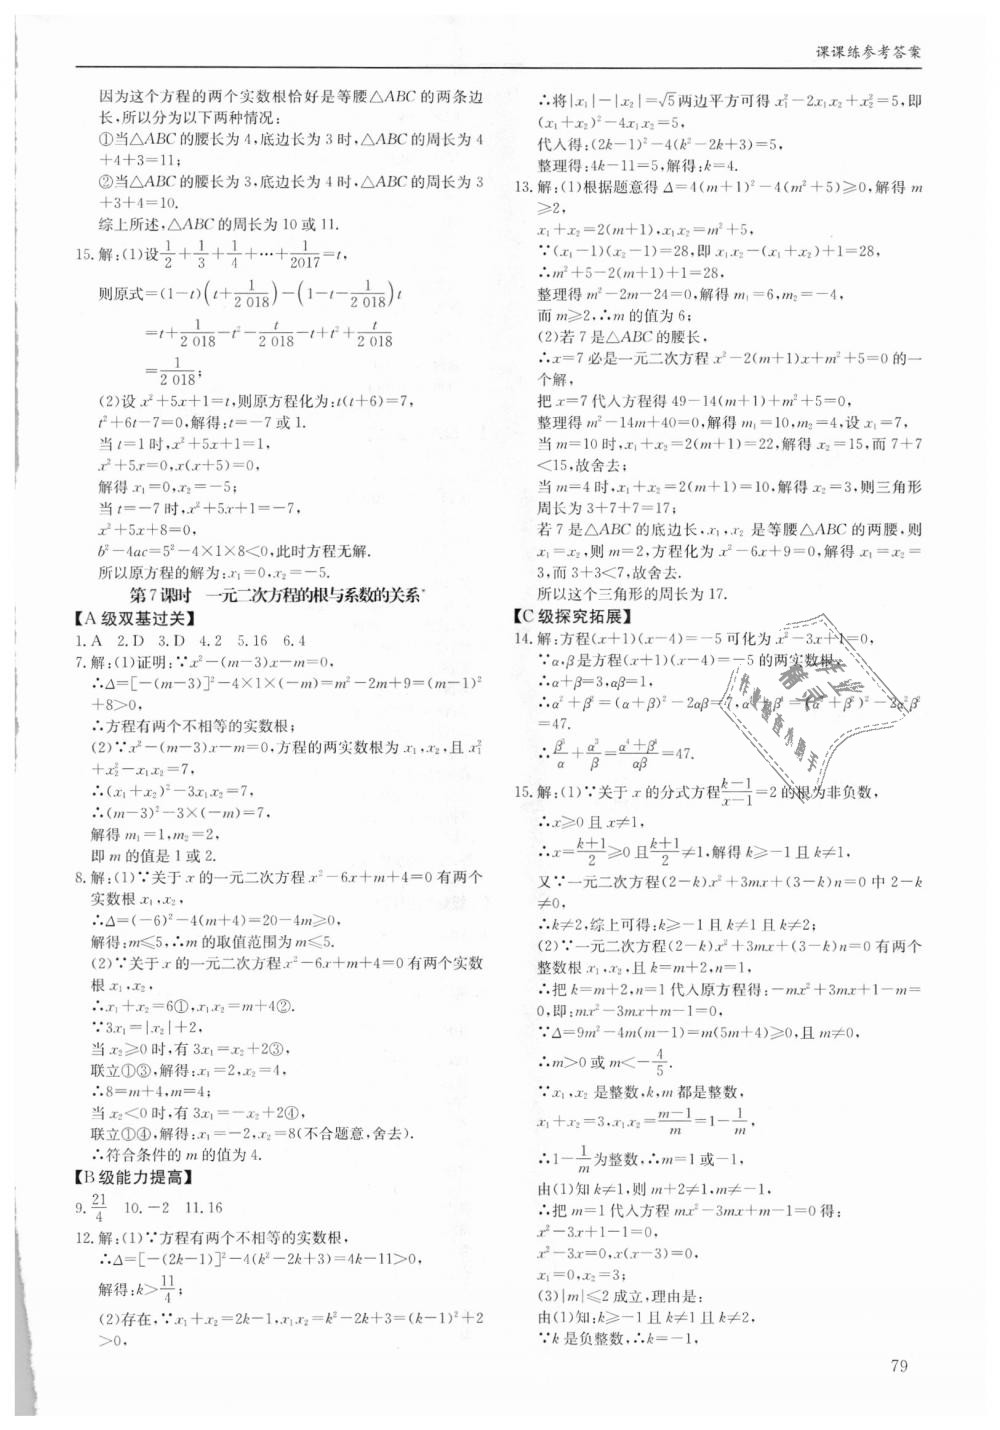 课课练参考答案
因为这个方程的两个实数根恰好是等腰△ABC的两条边
长,所以分为以下两种情况:
①当△ABC的腰长为4,底边长为3时,△ABC的周长为4
+4+3=11;
②当△ABC的腰长为3,底边长为4时,△ABC的周长为3
+3+4=10.
综上所述,△ABC的周长为10或11.
15.解:(1)设1/2+1/3+1/4+…+1/2017=t,
则原式=(1-t)(t+1/2018)-(1-t-1/2018)t
=t+1/2018-t²-t/2018-t+t²+t/2018
=1/2018;
(2)设x²+5x+1=t,则原方程化为:t(t+6)=7,
t²+6t-7=0,解得:t=-7或1.
当t=1时,x²+5x+1=1,
x²+5x=0,x(x+5)=0,
解得x₁=0,x₂=-5;
当t=-7时,x²+5x+1=-7,
x²+5x+8=0,
b²-4ac=5²-4×1×8<0,此时方程无解.
所以原方程的解为:x₁=0,x₂=-5.
第7课时 一元二次方程的根与系数的关系*
【A级双基过关】
1.A 2.D 3.D 4.2 5.16 6.4
7.解:(1)证明:∵x²-(m-3)x-m=0,
∴Δ=[-(m-3)]²-4×1×(-m)=m²-2m+9=(m-1)²
+8>0,
∴方程有两个不相等的实数根;
(2)∵x²-(m-3)x-m=0,方程的两实数根为x₁,x₂,且x₁²
+x₂²-x₁x₂=7,
∴(x₁+x₂)²-3x₁x₂=7,
∴(m-3)²-3×(-m)=7,
解得m₁=1,m₂=2,
即m的值是1或2.
8.解:(1)∵关于x的一元二次方程x²-6x+m+4=0有两个
实数根x₁,x₂,
∴Δ=(-6)²-4(m+4)=20-4m≥0,
解得:m≤5,∴m的取值范围为m≤5.
(2)∵关于x的一元二次方程x²-6x+m+4=0有两个实数
根x₁,x₂,
∴x₁+x₂=6①,x₁x₂=m+4②.
∵3x₁=|x₂|+2,
当x₂≥0时,有3x₁=x₂+2③,
联立①③,解得:x₁=2,x₂=4,
∴8=m+4,m=4;
当x₂<0时,有3x₁=-x₂+2④,
联立①④,解得:x₁=-2,x₂=8(不合题意,舍去).
∴符合条件的m的值为4.
【B级能力提高】
9.21/4 10.-2 11.16
12.解:(1)∵方程有两个不相等的实数根,
∴Δ=[-(2k-1)]²-4(k²-2k+3)=4k-11>0,
解得:k>11/4;
(2)存在,∵x₁+x₂=2k-1,x₁x₂=k²-2k+3=(k-1)²+2
>0,
∴将|x₁|-|x₂|=√5两边平方可得x₁²-2x₁x₂+x₂²=5,即
(x₁+x₂)²-4x₁x₂=5,
代入得:(2k-1)²-4(k²-2k+3)=5,
整理得:4k-11=5,解得:k=4.
13.解:(1)根据题意得Δ=4(m+1)²-4(m²+5)≥0,解得m
≥2,
x₁+x₂=2(m+1),x₁x₂=m²+5,
∵(x₁-1)(x₂-1)=28,即x₁x₂-(x₁+x₂)+1=28,
∴m²+5-2(m+1)+1=28,
整理得m²-2m-24=0,解得m₁=6,m₂=-4,
而m≥2,∴m的值为6;
(2)若7是△ABC的腰长,
∴x=7必是一元二次方程x²-2(m+1)x+m²+5=0的一
个解,
把x=7代入方程得49-14(m+1)+m²+5=0,
整理得m²-14m+40=0,解得m₁=10,m₂=4,设x₁=7,
当m=10时,x₁+x₂=2(m+1)=22,解得x₂=15,而7+7
<15,故舍去;
当m=4时,x₁+x₂=2(m+1)=10,解得x₂=3,则三角形
周长为3+7+7=17;
若7是△ABC的底边长,x₁,x₂是等腰△ABC的两腰,则
x₁=x₂,则m=2,方程化为x²-6x+9=0,解得x₁=x₂=
3,而3+3<7,故舍去.
所以这个三角形的周长为17.
【C级探究拓展】
14.解:方程(x+1)(x-4)=-5可化为x²-3x+1=0,
∵α,β是方程(x+1)(x-4)=-5的两实数根,
∴α+β=3,αβ=1,
∴α²+β²=(α+β)²-2αβ=7,α⁴+β⁴=(α²+β²)²-2α²β²
=47.
∴β³/α+α³/β=(α⁴+β⁴)/αβ=47.
15.解:(1)∵关于x的分式方程(k-1)/(x-1)=2的根为非负数,
∴x≥0且x≠1,
∴x=(k+1)/2≥0且(k+1)/2≠1,解得k≥-1且k≠1,
又∵一元二次方程(2-k)x²+3mx+(3-k)n=0中2-k
≠0,
∴k≠2,综上可得:k≥-1且k≠1且k≠2;
(2)∵一元二次方程(2-k)x²+3mx+(3-k)n=0有两个
整数根x₁,x₂,且k=m+2,n=1,
∴把k=m+2,n=1代入原方程得:-mx²+3mx+1-m=
0,即:mx²-3mx+m-1=0,
∵Δ=9m²-4m(m-1)=m(5m+4)≥0,且m≠0,
∴m>0或m<-4/5.
∵x₁,x₂是整数,k,m都是整数,
x₁+x₂=3,x₁x₂=(m-1)/m=1-1/m,
∴1-1/m为整数,∴m=1或-1,
由(1)知k≠1,则m+2≠1,m≠-1,
∴把m=1代入方程mx²-3mx+m-1=0得:
x²-3x+1-1=0,
x²-3x=0,x(x-3)=0,
x₁=0,x₂=3;
(3)|m|≤2成立,理由是:
由(1)知:k≥-1且k≠1且k≠2,
∵k是负整数,∴k=-1,
作业
精灵
作业检查小助手
79